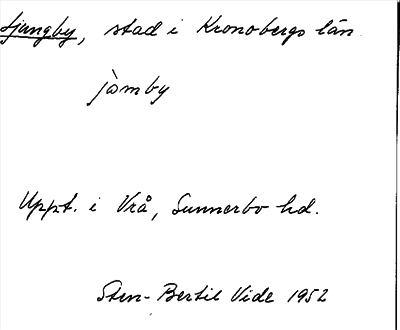 Ljungby, stad i Kronobergs län
jòmby
Uppt. i Vrå, Sunnerbo hd.
Sten-Bertil Vide 1952